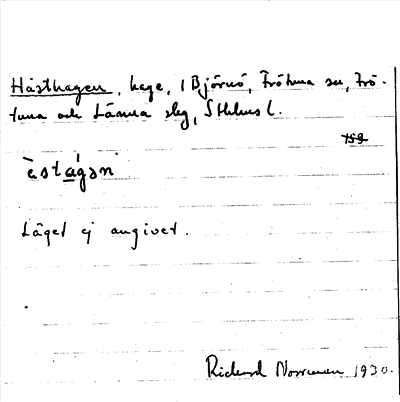 Hästhagen, hage, 1 Björnö, Frötuna sn, Frö-
tuna och Länna slg, Sthlms l.
159
èstágan
Läget ej angivet.
Richard Norrman 1930.